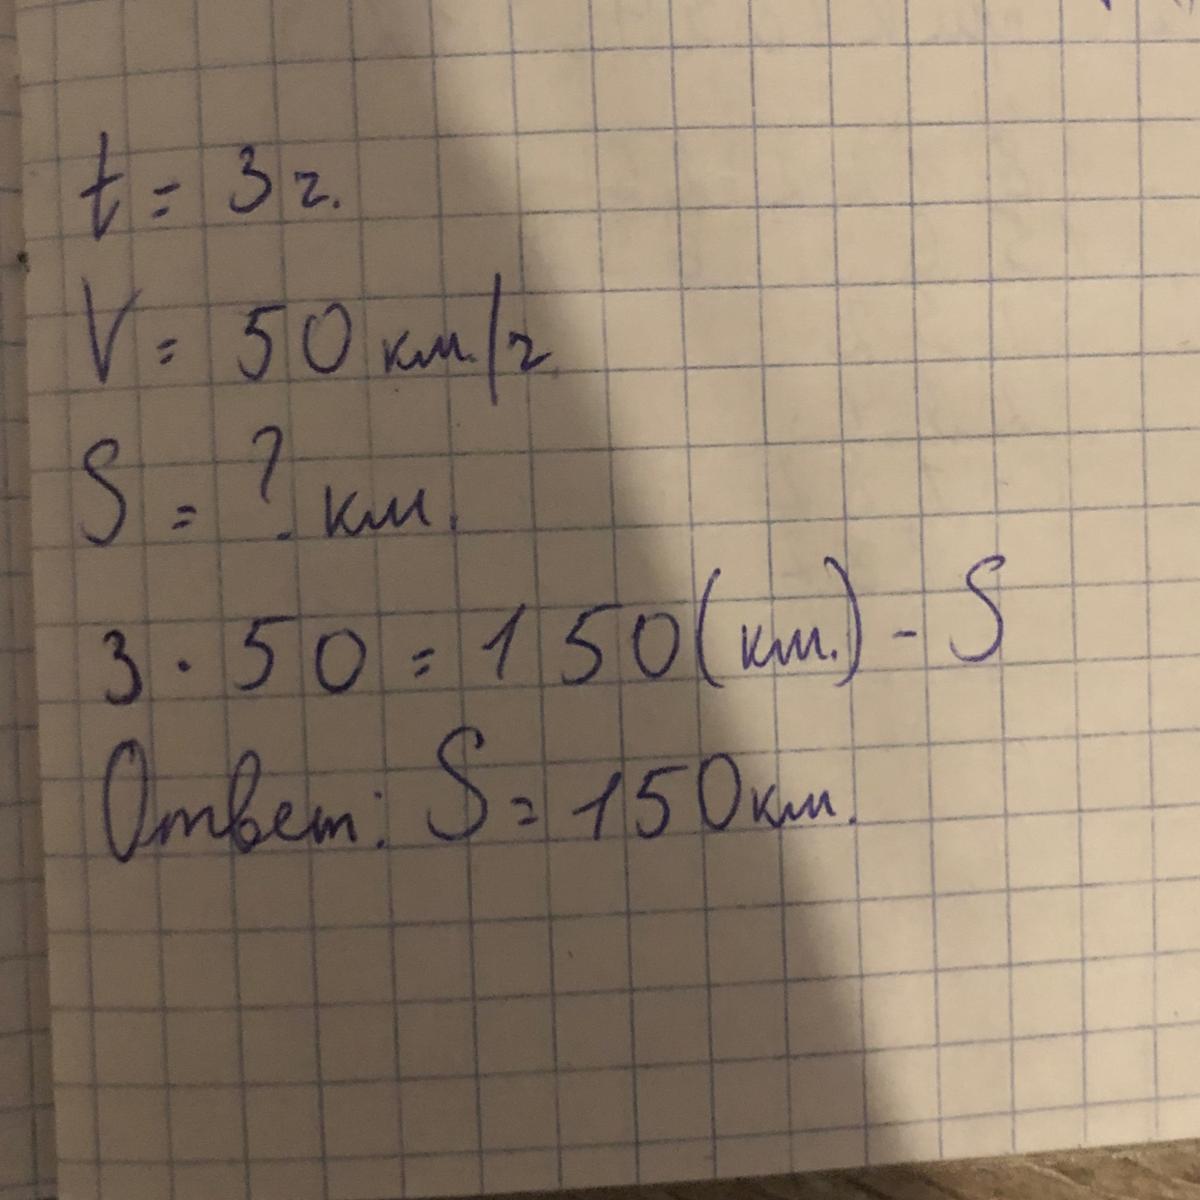 t = 3 ч.
V = 50 км./ч
S = ? км.
3 · 50 = 150 (км.) - S
Ответ: S = 150 км.